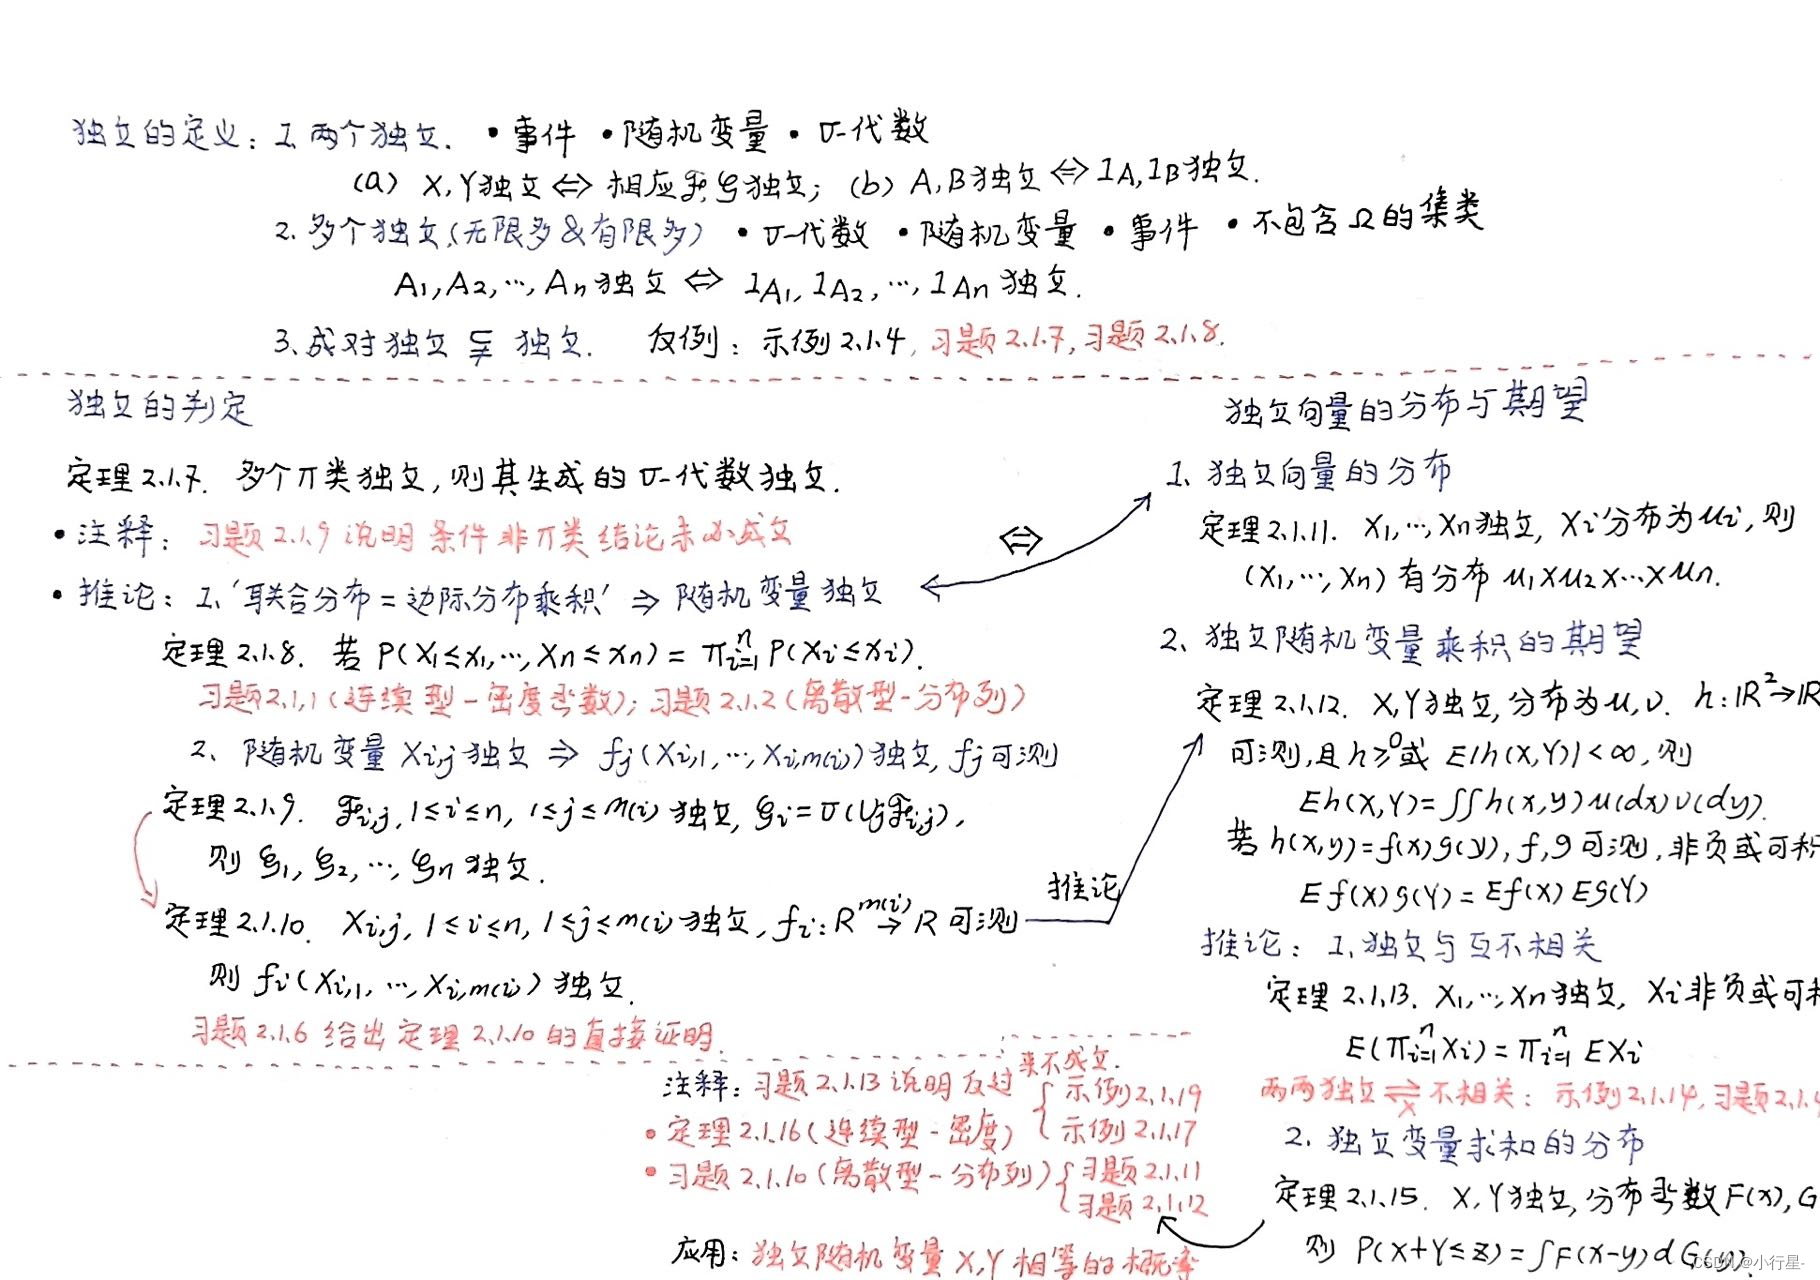 独立的定义: 1. 两个独立. • 事件 • 随机变量 • σ-代数
(a) X,Y独立 ⇔ 相应ℱ,𝒢独立; (b) A,B独立 ⇔ 1A,1B独立.
2. 多个独立(无限多&有限多) • σ-代数 • 随机变量 • 事件 • 不包含Ω的集类
A₁,A₂,…,Aₙ独立 ⇔ 1A₁,1A₂,…,1Aₙ独立.
3. 成对独立 ⊊ 独立. 反例: 示例2.1.4, 习题2.1.7, 习题2.1.8.
独立的判定
定理2.1.7. 多个π类独立,则其生成的σ-代数独立.
• 注释: 习题2.1.9 说明 条件非π类 结论未必成立
• 推论: 1. '联合分布=边际分布乘积' ⇒ 随机变量独立
定理2.1.8. 若 P(X₁≤x₁,…,Xn≤xn) = πⁿᵢ₌₁ P(Xi≤xi).
习题2.1.1(连续型-密度函数); 习题2.1.2(离散型-分布列)
2. 随机变量 Xi,j 独立 ⇒ fj(Xi,1,…,Xi,m(i))独立, fj可测
定理2.1.9. ℱi,j, 1≤i≤n, 1≤j≤m(i) 独立, 𝒢i=σ(∪jℱi,j),
则 𝒢₁,𝒢₂,…,𝒢n 独立.
定理2.1.10. Xi,j, 1≤i≤n, 1≤j≤m(i)独立, fi:R^m(i)→R 可测
则 fi(Xi,1,…,Xi,m(i))独立.
习题2.1.6 给出定理2.1.10的直接证明.
⇔
推论
独立向量的分布与期望
1. 独立向量的分布
定理2.1.11. X₁,…,Xn独立, Xi分布为μi,则
(X₁,…,Xn)有分布 μ₁×μ₂×…×μn.
2. 独立随机变量乘积的期望
定理2.1.12. X,Y独立,分布为μ,ν. h:ℝ²→ℝ
可测,且h≥0或 E|h(X,Y)|<∞,则
Eh(X,Y)=∫∫h(x,y)μ(dx)ν(dy).
若h(x,y)=f(x)g(y), f,g可测,非负或可积
Ef(X)g(Y)=Ef(X)Eg(Y)
推论: 1. 独立与互不相关
定理2.1.13. X₁,…,Xn独立, Xi非负或可积
E(πⁿᵢ₌₁Xi)=πⁿᵢ₌₁ EXi
两两独立 ⇌ₓ 不相关: 示例2.1.14, 习题2.1.4
2. 独立变量求和的分布
定理2.1.15. X,Y独立,分布函数F(x),G
则 P(X+Y≤z)=∫F(x-y)dG(y)
注释: 习题2.1.13 说明反过来不成立.
• 定理2.1.16(连续型-密度) { 示例2.1.19
示例2.1.17
• 习题2.1.10(离散型-分布列) { 习题2.1.11
习题2.1.12
应用: 独立随机变量X,Y相等的概率
CSDN @小行星-